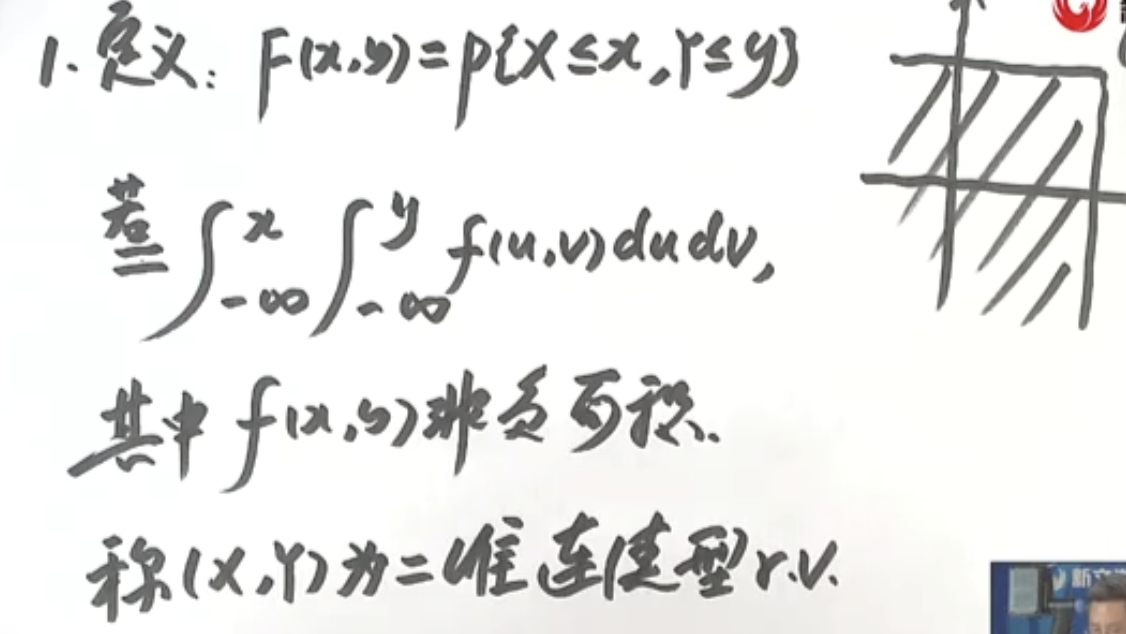 1. 定义: F(x,y)=P{X≤x,Y≤y}
若= ∫_{-∞}^{x} ∫_{-∞}^{y} f(u,v)dudv,
其中 f(x,y)非负可积.
称(X,Y)为二维连续型r.v.
新文